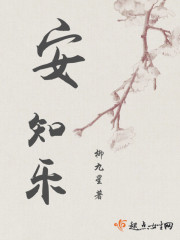 安知乐
柳九星著
起点女生网